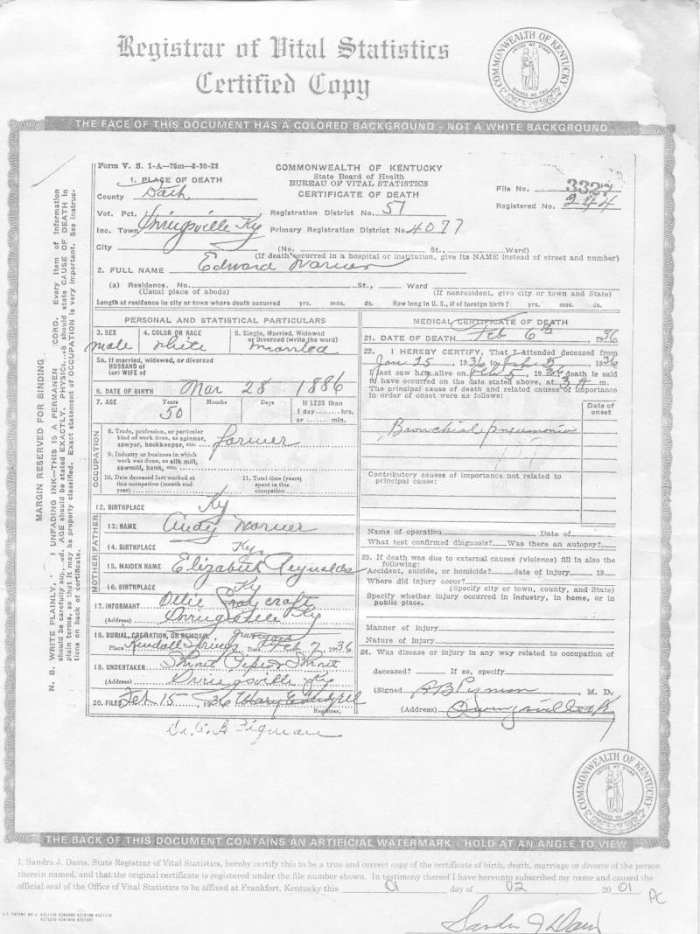 Registrar of Vital Statistics
Certified Copy
COMMONWEALTH OF KENTUCKY
THE FACE OF THIS DOCUMENT HAS A COLORED BACKGROUND - NOT A WHITE BACKGROUND
Form V. S. 1-A
COMMONWEALTH OF KENTUCKY
State Board of Health
BUREAU OF VITAL STATISTICS
CERTIFICATE OF DEATH
File No.
Registered No. 244
1. PLACE OF DEATH
County Bath
Vot. Pct. Registration District No. 51
Inc. Town Primary Registration District No.
City (No. St., Ward)
(If death occurred in a hospital or institution, give its NAME instead of street and number)
2. FULL NAME Edward Warner
(a) Residence. No. St., Ward
(Usual place of abode) (If nonresident, give city or town and State)
Length of residence in city or town where death occurred yrs. mos. ds. How long in U. S., if of foreign birth? yrs. mos. ds.
PERSONAL AND STATISTICAL PARTICULARS
3. SEX 4. COLOR OR RACE 5. Single, Married, Widowed
or Divorced (write the word)
male white married
5a. If married, widowed, or divorced
HUSBAND of
(or) WIFE of
6. DATE OF BIRTH Mar 28 1886
7. AGE Years Months Days If LESS than
50 1 day hrs.
or min.
OCCUPATION
8. Trade, profession, or particular
kind of work done, as spinner,
sawyer, bookkeeper, etc. farmer
9. Industry or business in which
work was done, as silk mill,
sawmill, bank, etc.
10. Date deceased last worked at 11. Total time (years)
this occupation (month and spent in this
year) occupation
12. BIRTHPLACE Ky
FATHER
13. NAME Andy Warner
14. BIRTHPLACE Ky
MOTHER
15. MAIDEN NAME Elizabeth Reynolds
16. BIRTHPLACE Ky
17. INFORMANT Ollie
(Address) Ky
18. BURIAL, CREMATION, OR REMOVAL
Place Kendall Springs Date Feb 7, 1936
19. UNDERTAKER
(Address) Ky
20. FILED Feb 15, 1936
Registrar.
MEDICAL CERTIFICATE OF DEATH
21. DATE OF DEATH Feb 6th 1936
22. I HEREBY CERTIFY, That I attended deceased from
Jan 25, 1936 to Feb 5, 1936
I last saw him alive on Feb 5, 1936 death is said
to have occurred on the date stated above, at 3 A m.
The principal cause of death and related causes of importance
in order of onset were as follows:
Date of
onset
Bronchial pneumonia
Contributory causes of importance not related to
principal cause:
Name of operation Date of
What test confirmed diagnosis? Was there an autopsy?
23. If death was due to external causes (violence) fill in also the
following:
Accident, suicide, or homicide? date of injury 19
Where did injury occur?
(Specify city or town, county, and State)
Specify whether injury occurred in industry, in home, or in
public place.
Manner of injury
Nature of injury
24. Was disease or injury in any way related to occupation of
deceased? If so, specify
(Signed , M. D.
(Address)
MARGIN RESERVED FOR BINDING
COMMONWEALTH OF KENTUCKY
THE BACK OF THIS DOCUMENT CONTAINS AN ARTIFICIAL WATERMARK - HOLD AT AN ANGLE TO VIEW
I, Sandra J. Davis, State Registrar of Vital Statistics, hereby certify this to be a true and correct copy of the certificate of birth, death, marriage or divorce of the person
therein named, and that the original certificate is registered under the file number shown. In testimony thereof I have hereunto subscribed my name and caused the
official seal of the Office of Vital Statistics to be affixed at Frankfort, Kentucky this day of 02 2001
Sandra J Davis